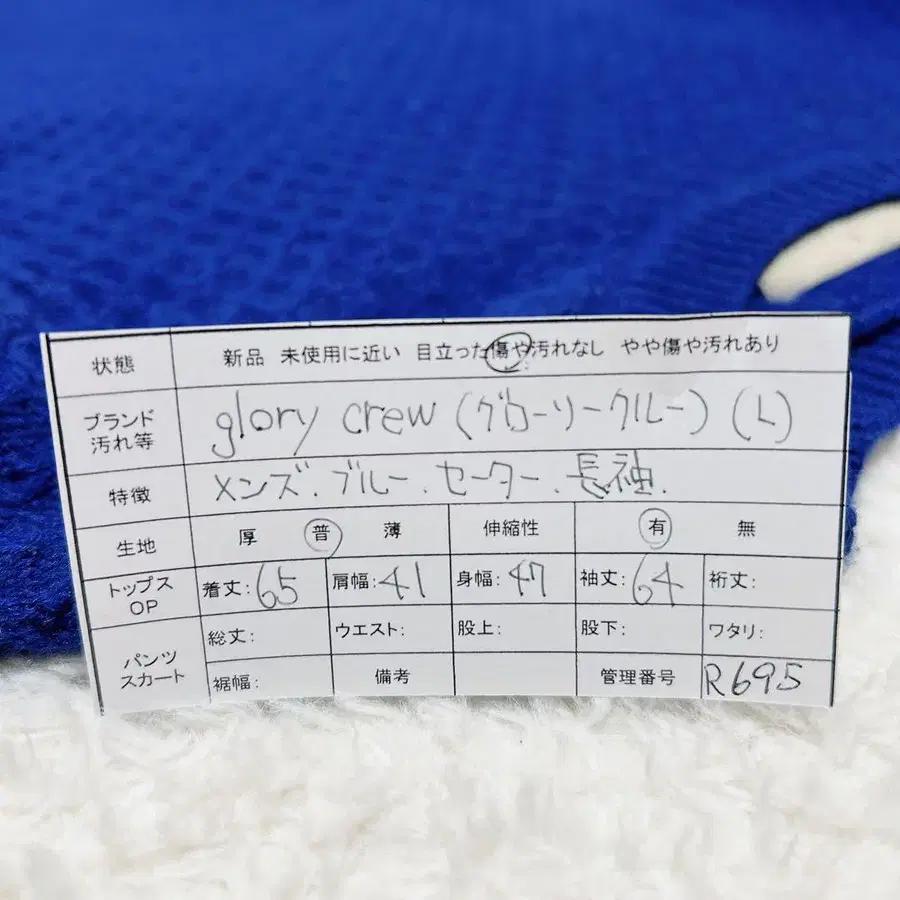 状態 新品 未使用に近い 目立った傷や汚れなし やや傷や汚れあり
ブランド 汚れ等 glory crew (グローリークルー) (L)
特徴 メンズ.ブルー.セーター.長袖.
生地 厚 普 薄 伸縮性 有 無
トップス OP 着丈:65 肩幅:41 身幅:47 袖丈:64 裄丈:
パンツ スカート 総丈: ウエスト: 股上: 股下: ワタリ:
裾幅: 備考 管理番号 R695